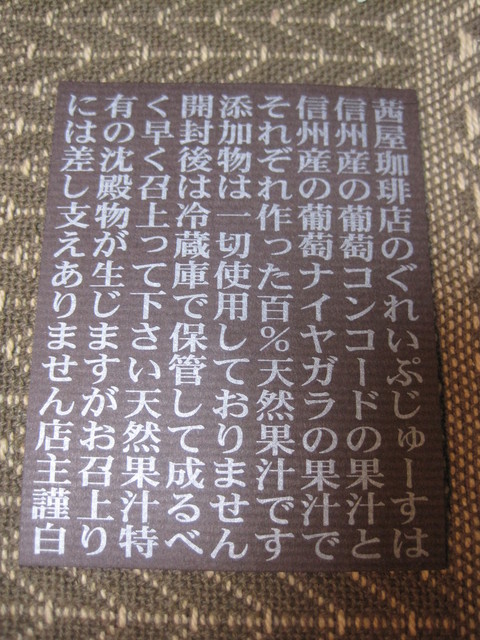 茜屋珈琲店のぐれいぷじゅーすは
信州産の葡萄コンコードの果汁と
信州産の葡萄ナイヤガラの果汁で
それぞれ作った百%天然果汁です
添加物は一切使用しておりません
開封後は冷蔵庫で保管して成るべ
く早く召上って下さい天然果汁特
有の沈殿物が生じますがお召上り
には差し支えありません店主謹白